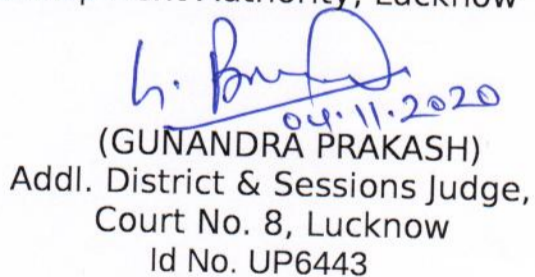 Authority, Lucknow
04.11.2020
(GUNANDRA PRAKASH)
Addl. District & Sessions Judge,
Court No. 8, Lucknow
Id No. UP6443